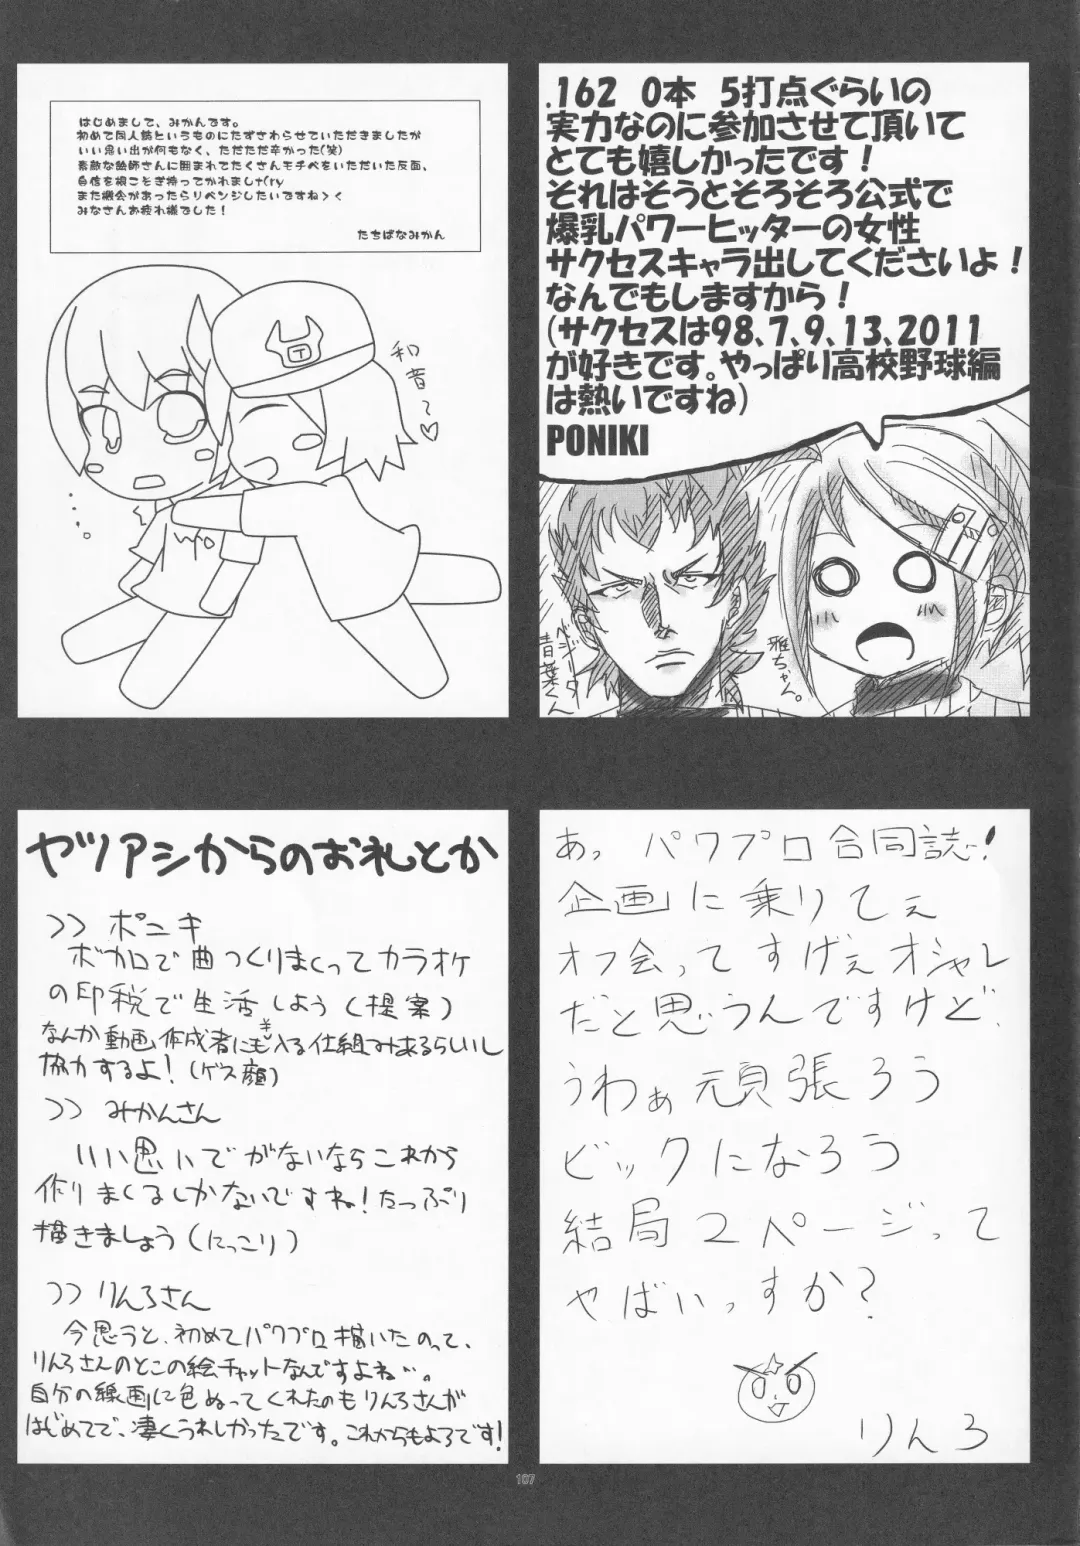 はじめまして、みかんです。
初めて同人誌というものにたずさわらせていただきましたが
いい思い出が何もなく、ただただ辛かった(笑)
素敵な絵師さんに囲まれてたくさんモチベをいただいた反面、
自信を根こそぎ持ってかれまし+(ry
また機会があったらリベンジしたいですね><
みなさんお疲れ様でした!
たちばなみかん
和
昔～♡
.162 0本 5打点ぐらいの
実力なのに参加させて頂いて
とても嬉しかったです!
それはそうとそろそろ公式で
爆乳パワーヒッターの女性
サクセスキャラ出してくださいよ!
なんでもしますから!
(サクセスは98、7、9、13、2011
が好きです。やっぱり高校野球編
は熱いですね)
PONIKI
ベジータ
青葉くん
雅ちゃん。
ヤツアシからのお礼とか
>> ポニキ
ボカロで曲つくりまくってカラオケ
の印税で生活しよう(提案)
なんか動画作成者にも¥入る仕組みあるらしいし
協力するよ!(ゲス顔)
>> みかんさん
いい思いでがないならこれから
作りまくるしかないですね!たっぷり
描きましょう(にっこり)
>> りんろさん
今思うと、初めてパワプロ描いたのって、
りんろさんのとこの絵チャットなんですよね…。
自分の線画に色ぬってくれたのもりんろさんが
はじめてで、凄くうれしかったです。これからもよろです!
あっ パワプロ合同誌!
企画に乗りてぇ
オフ会ってすげぇオシャレ
だと思うんですけど、
うわぁ頑張ろう
ビックになろう
結局2ページって
やばいっすか?
りんろ
167